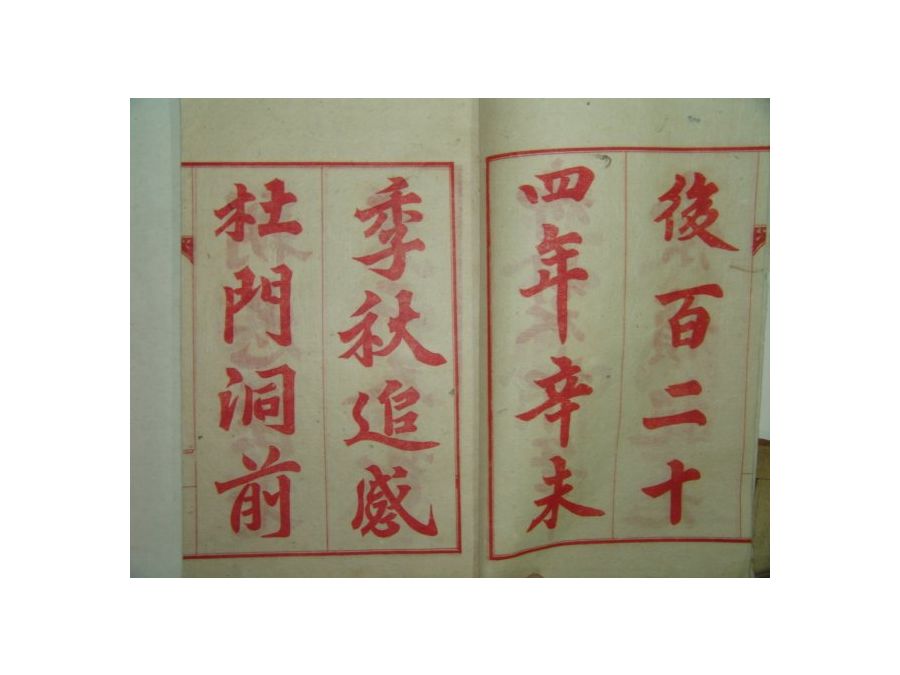 後百二十
四年辛未
季秋追感
杜門洞前